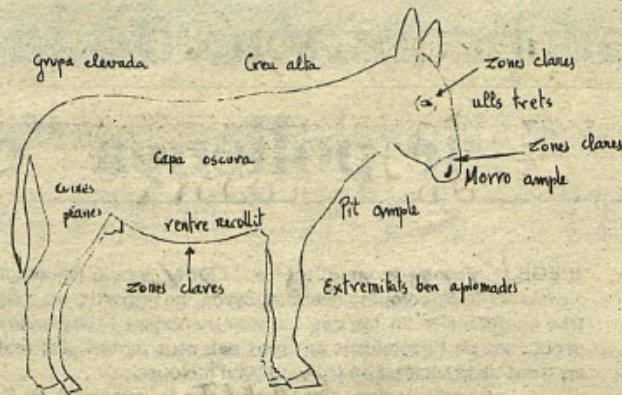 Grupa elevada
Creu alta
zones clares
ulls trets
Capa oscura
zones clares
Morro ample
cuixes
planes
ventre recollit
Pit ample
zones claves
Extremitats ben aplomades